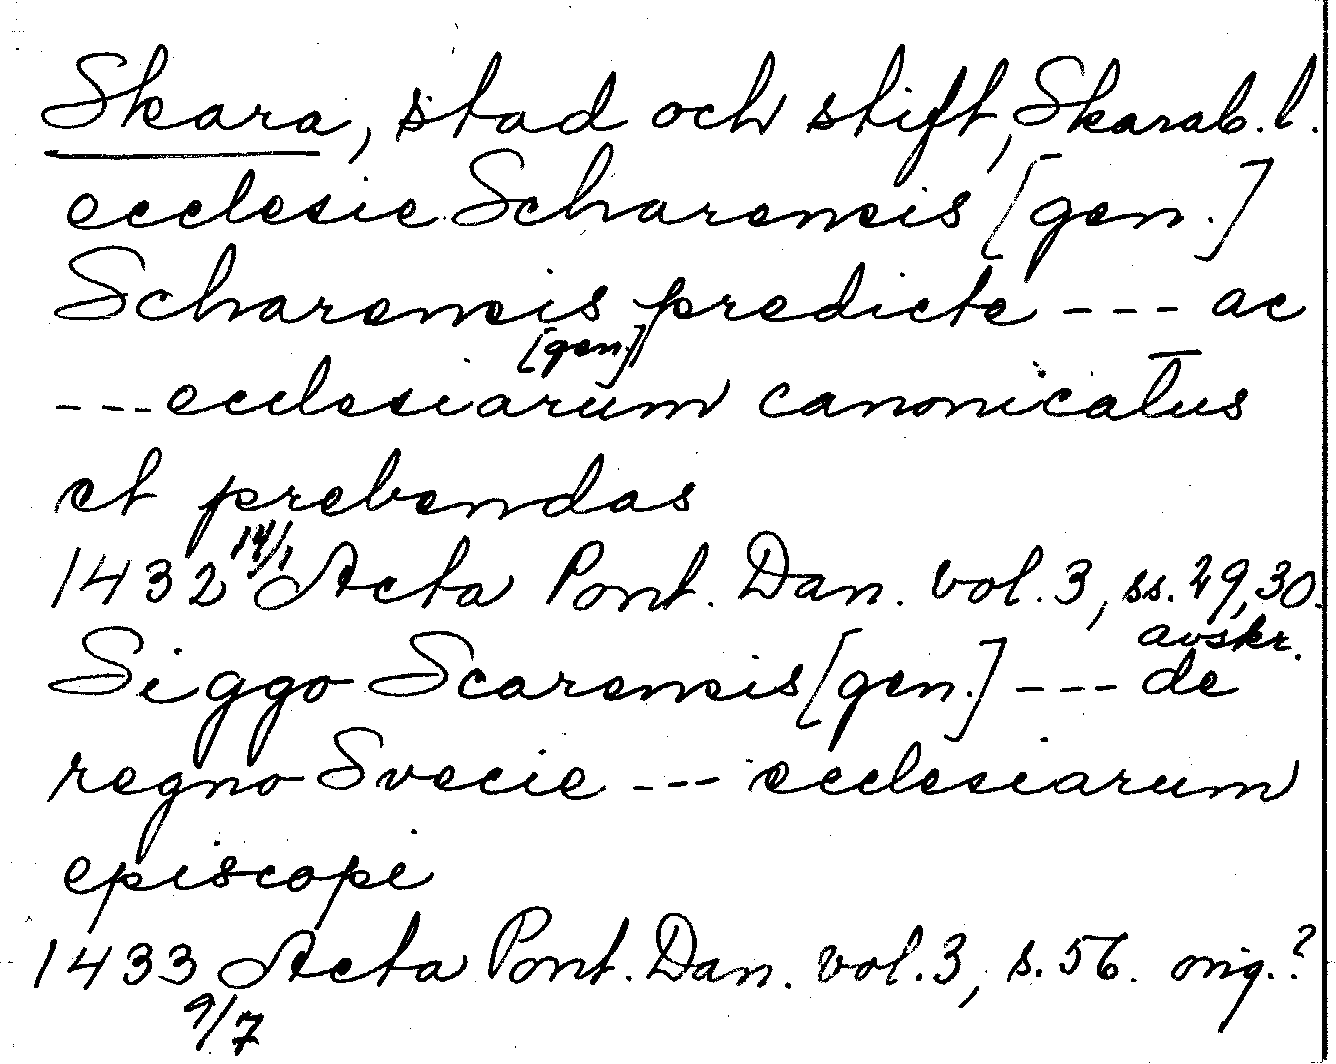 Skara, stad och stift, Skarab. l.
ecclesie Scharensis [gen.]
Scharensis predicte --- ac
[gen.]
--- ecclesiarum canonicatus
et prebendas
1432 14/1 Acta Pont. Dan. vol. 3, ss. 29, 30.
avskr.
Siggo Scarensis [gen.] --- de
regno Svecie --- ecclesiarum
episcopi
1433 Acta Pont. Dan. vol. 3, s. 56. orig.?
9/7